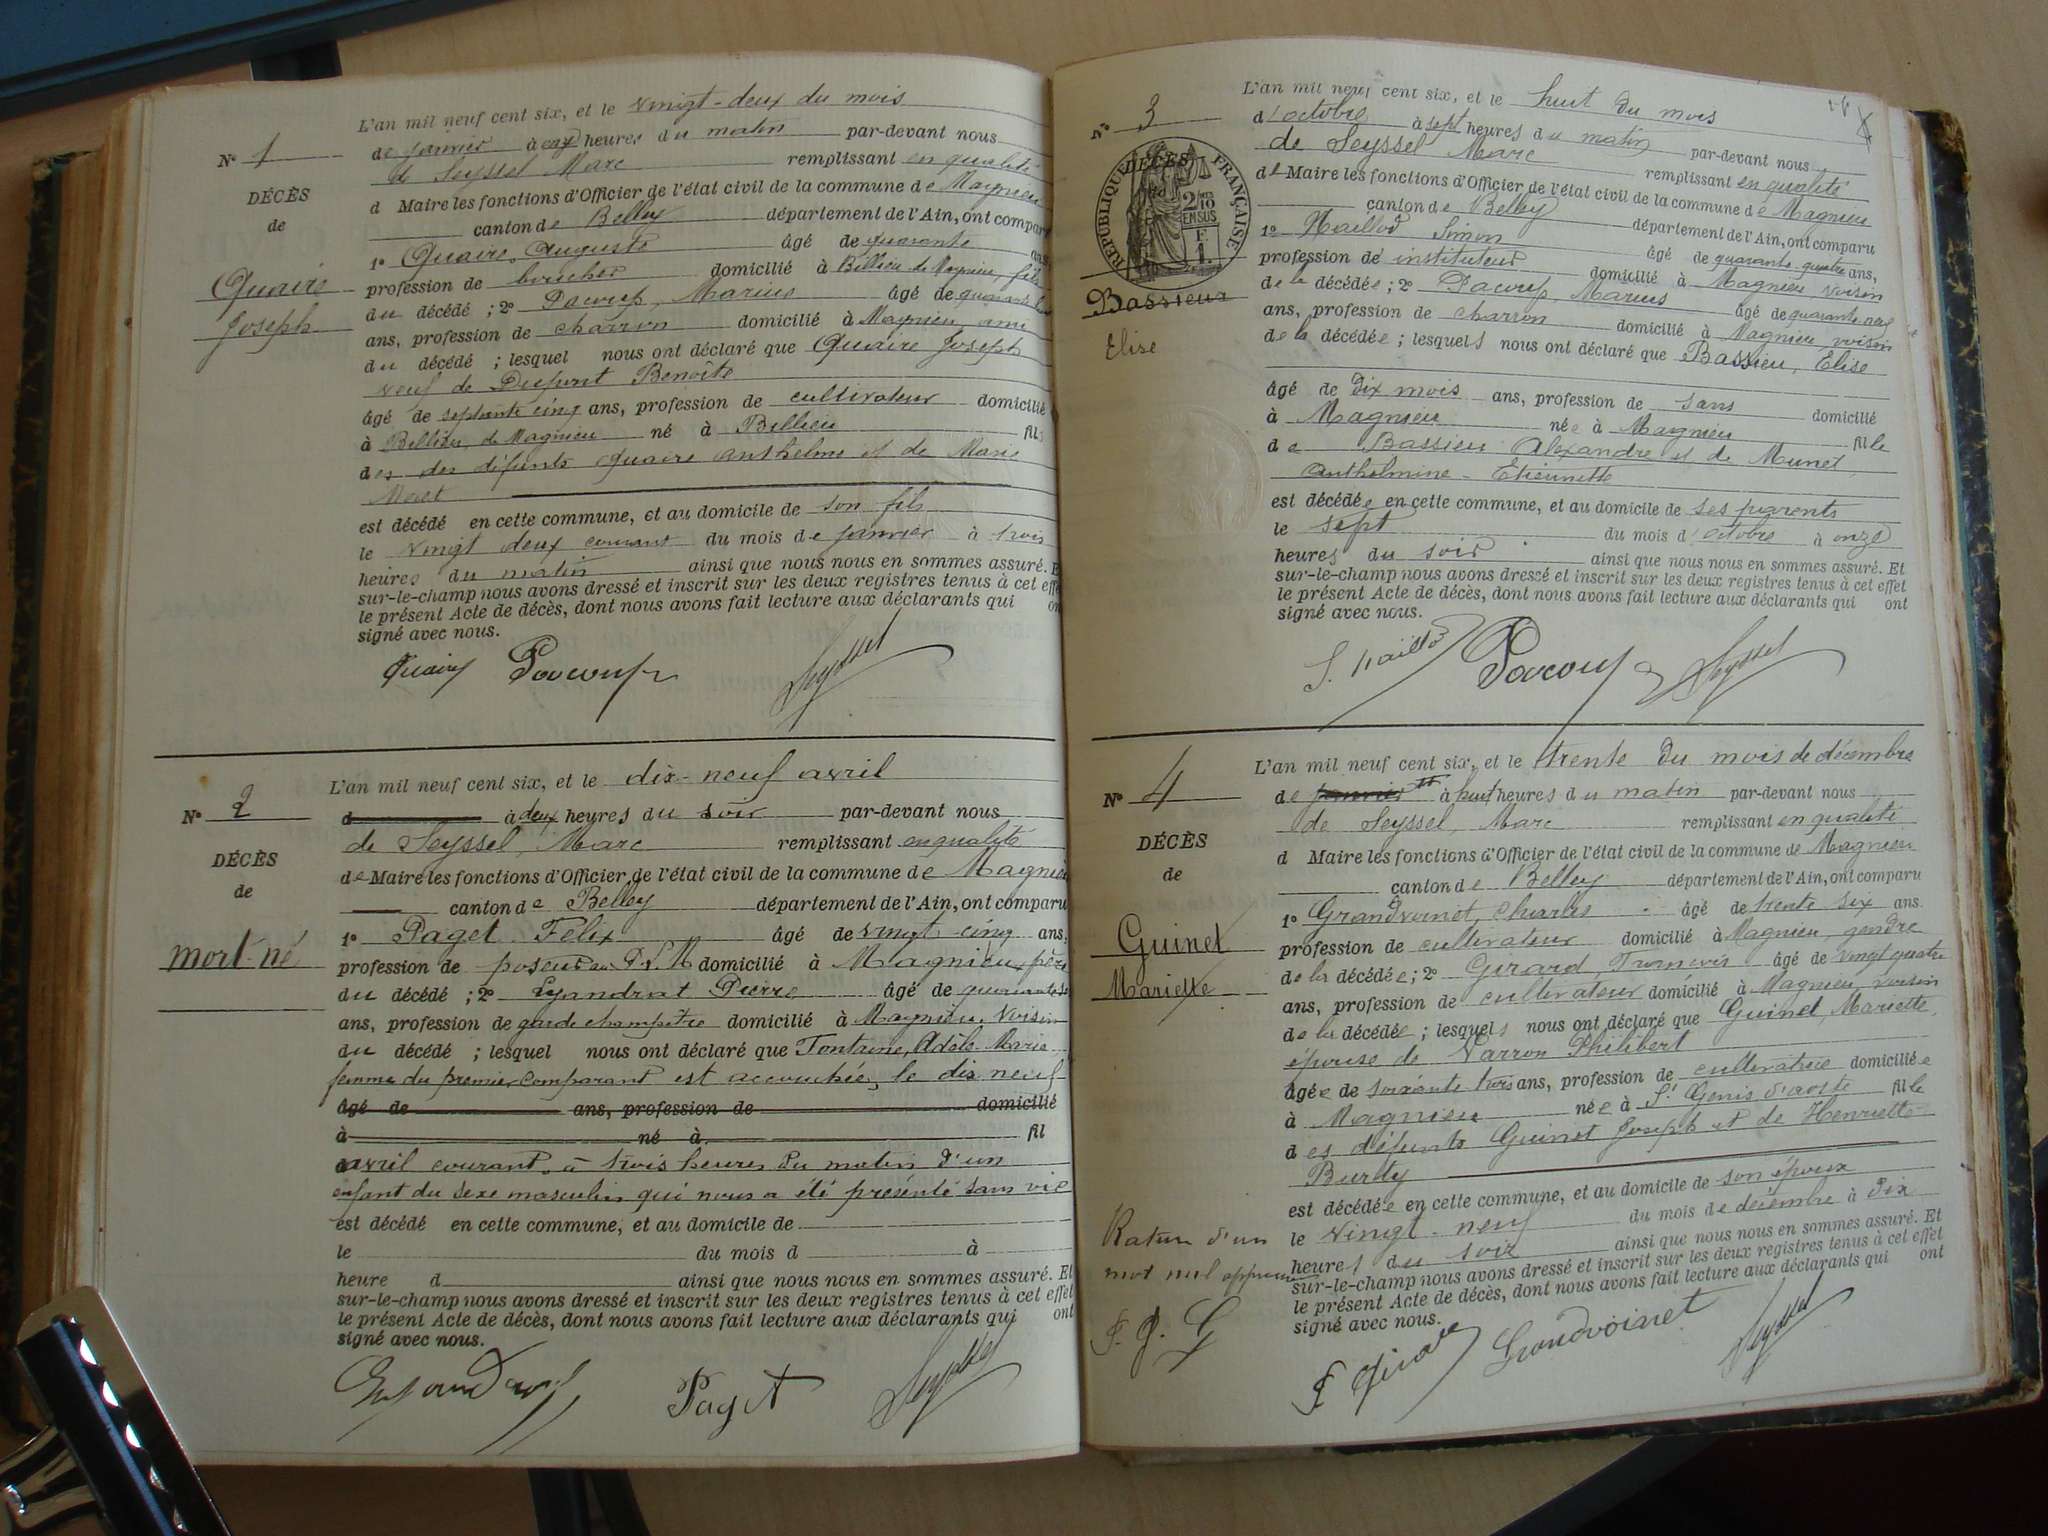 L'an mil neuf cent six, et le vingt-deux du mois
de janvier à heures du matin par-devant nous
de Seyssel Marc remplissant en qualité
d Maire les fonctions d'Officier de l'état civil de la commune de Magnieu
canton de Belley département de l'Ain, ont comparu
1° Quaire, Auguste âgé de quarante ans,
profession de boucher domicilié à Billieu de Magnieu, fils
du décédé ; 2° Pacoup, Marius âgé de
ans, profession de charron domicilié à Magnieu ami
du décédé ; lesquel nous ont déclaré que Quaire Joseph
veuf de Dupont Benoite
âgé de septante cinq ans, profession de cultivateur domicilié
à Billieu, de Magnieu né à Billieu fils
des des défunts Quaire Anthelme et de Marie
est décédé en cette commune, et au domicile de son fils
le vingt deux courant du mois de janvier à trois
heures du matin ainsi que nous nous en sommes assuré. Et
sur-le-champ nous avons dressé et inscrit sur les deux registres tenus à cet effet
le présent Acte de décès, dont nous avons fait lecture aux déclarants qui ont
signé avec nous.
N° 1
DÉCÈS
de
Quaire
Joseph
Quaire Pacoup Seyssel
L'an mil neuf cent six, et le dix-neuf avril
d à deux heures du soir par-devant nous
de Seyssel, Marc remplissant en qualité
de Maire les fonctions d'Officier de l'état civil de la commune de Magnieu
canton de Belley département de l'Ain, ont comparu
1° Paget Félix âgé de vingt-cinq ans,
profession de poseur au P.L.M domicilié à Magnieu, père
du décédé ; 2° Eyandrat Pierre âgé de
ans, profession de garde champêtre domicilié à Magnieu, voisin
du décédé ; lesquel nous ont déclaré que Fontaine, Adèle Marie
femme du premier comparant est accouchée, le dix neuf
âgé de ans, profession de domicilié
à né à fil
avril courant, à trois heures du matin d'un
enfant du sexe masculin qui nous a été présenté sans vie
est décédé en cette commune, et au domicile de
le du mois d à
heure d ainsi que nous nous en sommes assuré. Et
sur-le-champ nous avons dressé et inscrit sur les deux registres tenus à cet effet
le présent Acte de décès, dont nous avons fait lecture aux déclarants qui ont
signé avec nous.
N° 2
DÉCÈS
de
mort-né
Paget Seyssel
L'an mil neuf cent six, et le huit du mois
d'octobre à sept heures du matin par-devant nous
de Seyssel Marc remplissant en qualité
de Maire les fonctions d'Officier de l'état civil de la commune de Magnieu
canton de Belley département de l'Ain, ont comparu
1° Maillod Simon âgé de quarante quatre ans,
profession de instituteur domicilié à Magnieu voisin
de la décédée ; 2° Pacoup, Marius âgé de quarante neuf
ans, profession de charron domicilié à Magnieu voisin
de la décédée ; lesquels nous ont déclaré que Bassieu, Elise
âgé de dix mois ans, profession de sans domicilié
à Magnieu née à Magnieu fille
de Bassieu Alexandre et de Munet
Anthelmine-Etiennette
est décédée en cette commune, et au domicile de ses parents
le sept du mois d'octobre à onze
heures du soir ainsi que nous nous en sommes assuré. Et
sur-le-champ nous avons dressé et inscrit sur les deux registres tenus à cet effet
le présent Acte de décès, dont nous avons fait lecture aux déclarants qui ont
signé avec nous.
N° 3
DÉCÈS
RÉPUBLIQUE FRANÇAISE
2/10 EN SUS
F. 1.
Bassieux
Elise
Pacoup Seyssel
L'an mil neuf cent six, et le trente du mois de décembre
de janvier à huit heures du matin par-devant nous
de Seyssel, Marc remplissant en qualité
d Maire les fonctions d'Officier de l'état civil de la commune de Magnieu
canton de Belley département de l'Ain, ont comparu
1° Grandvoinet, Charles âgé de trente six ans
profession de cultivateur domicilié à Magnieu, gendre
de la décédée ; 2° Girard, François âgé de vingt quatre
ans, profession de cultivateur domicilié à Magnieu, voisin
de la décédée ; lesquels nous ont déclaré que Guinet, Mariette,
épouse de Varron Philibert
âgée de soixante trois ans, profession de cultivatrice domiciliée
à Magnieu née à St Genis d'Aoste fille
des défunts Guinet Joseph et de Henriette
Burty
est décédée en cette commune, et au domicile de son époux
le vingt-neuf du mois de décembre à dix
heures du soir ainsi que nous nous en sommes assuré. Et
sur-le-champ nous avons dressé et inscrit sur les deux registres tenus à cet effet
le présent Acte de décès, dont nous avons fait lecture aux déclarants qui ont
signé avec nous.
N° 4
DÉCÈS
de
Guinet
Mariette
Rature d'un
mot nul
F. Girard Grandvoinet Seyssel